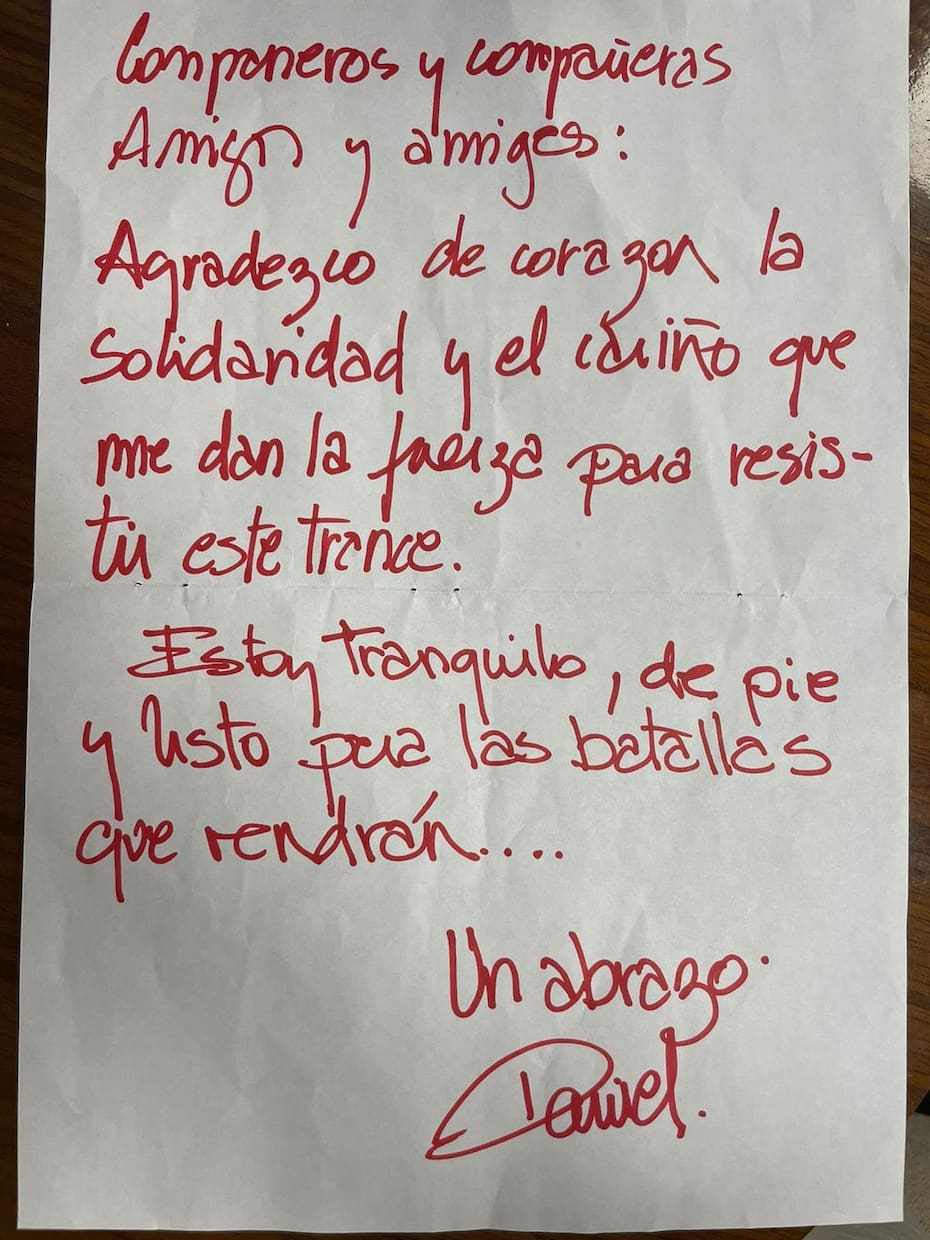 Compañeros y compañeras
Amigos y amigas:
Agradezco de corazon la
solidaridad y el cariño que
me dan la fuerza para resis-
tir este trance.
Estoy tranquilo, de pie
y listo para las batallas
que vendrán....
Un abrazo.
Daniel.